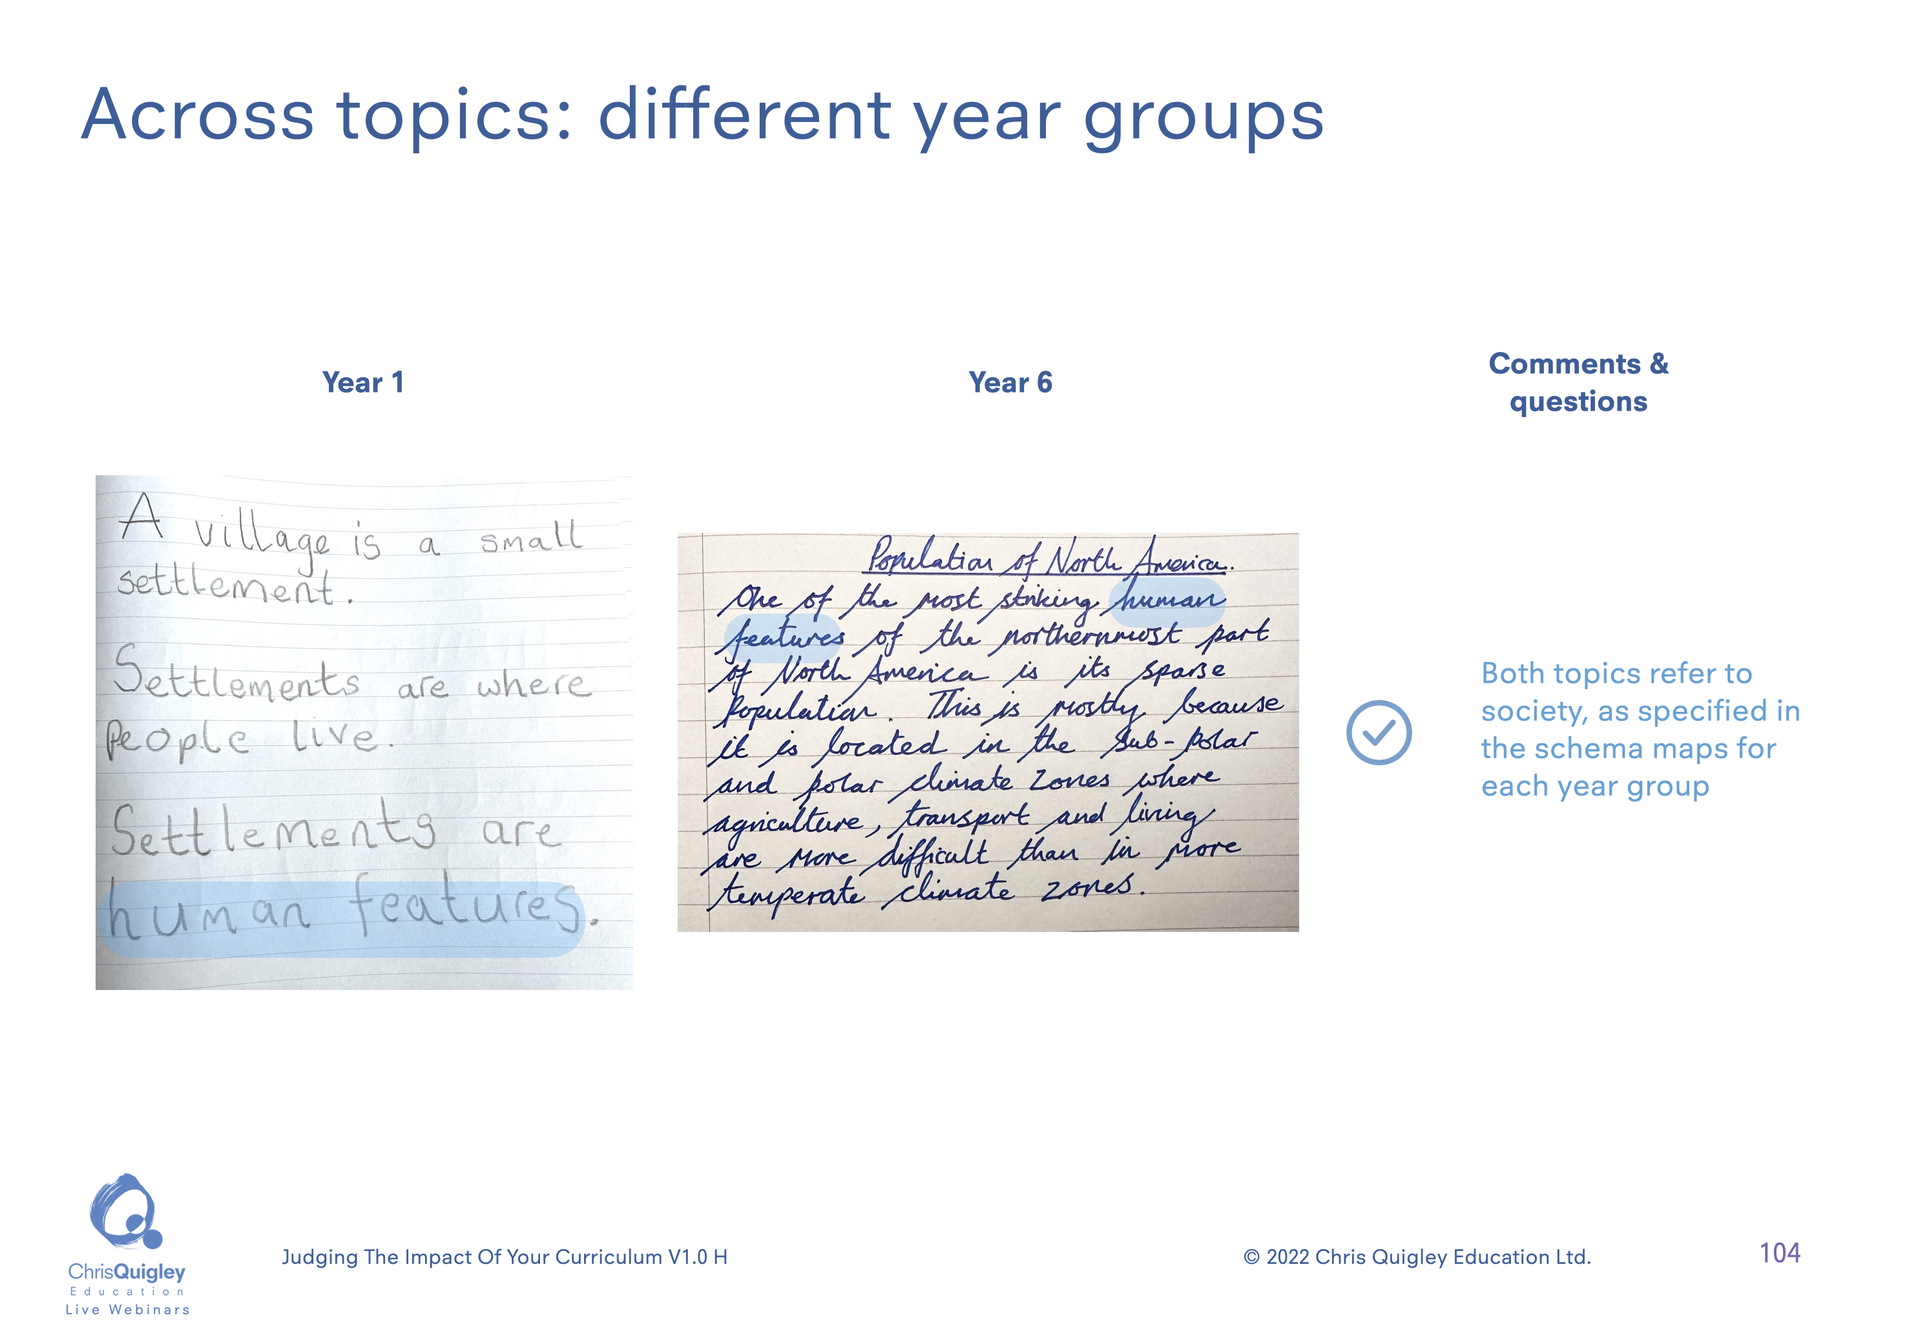 Across topics: different year groups
Year 1
Year 6
Comments &
questions
A village is a small
settlement.
Settlements are where
People live.
Settlements are
human features.
Population of North America.
One of the most striking human
features of the northernmost part
of North America is its sparse
Population. This is mostly because
it is located in the Sub-Polar
and polar climate zones where
agriculture, transport and living
are more difficult than in more
temperate climate zones.
Both topics refer to
society, as specified in
the schema maps for
each year group
ChrisQuigley
Education
Live Webinars
Judging The Impact Of Your Curriculum V1.0 H
© 2022 Chris Quigley Education Ltd.
104